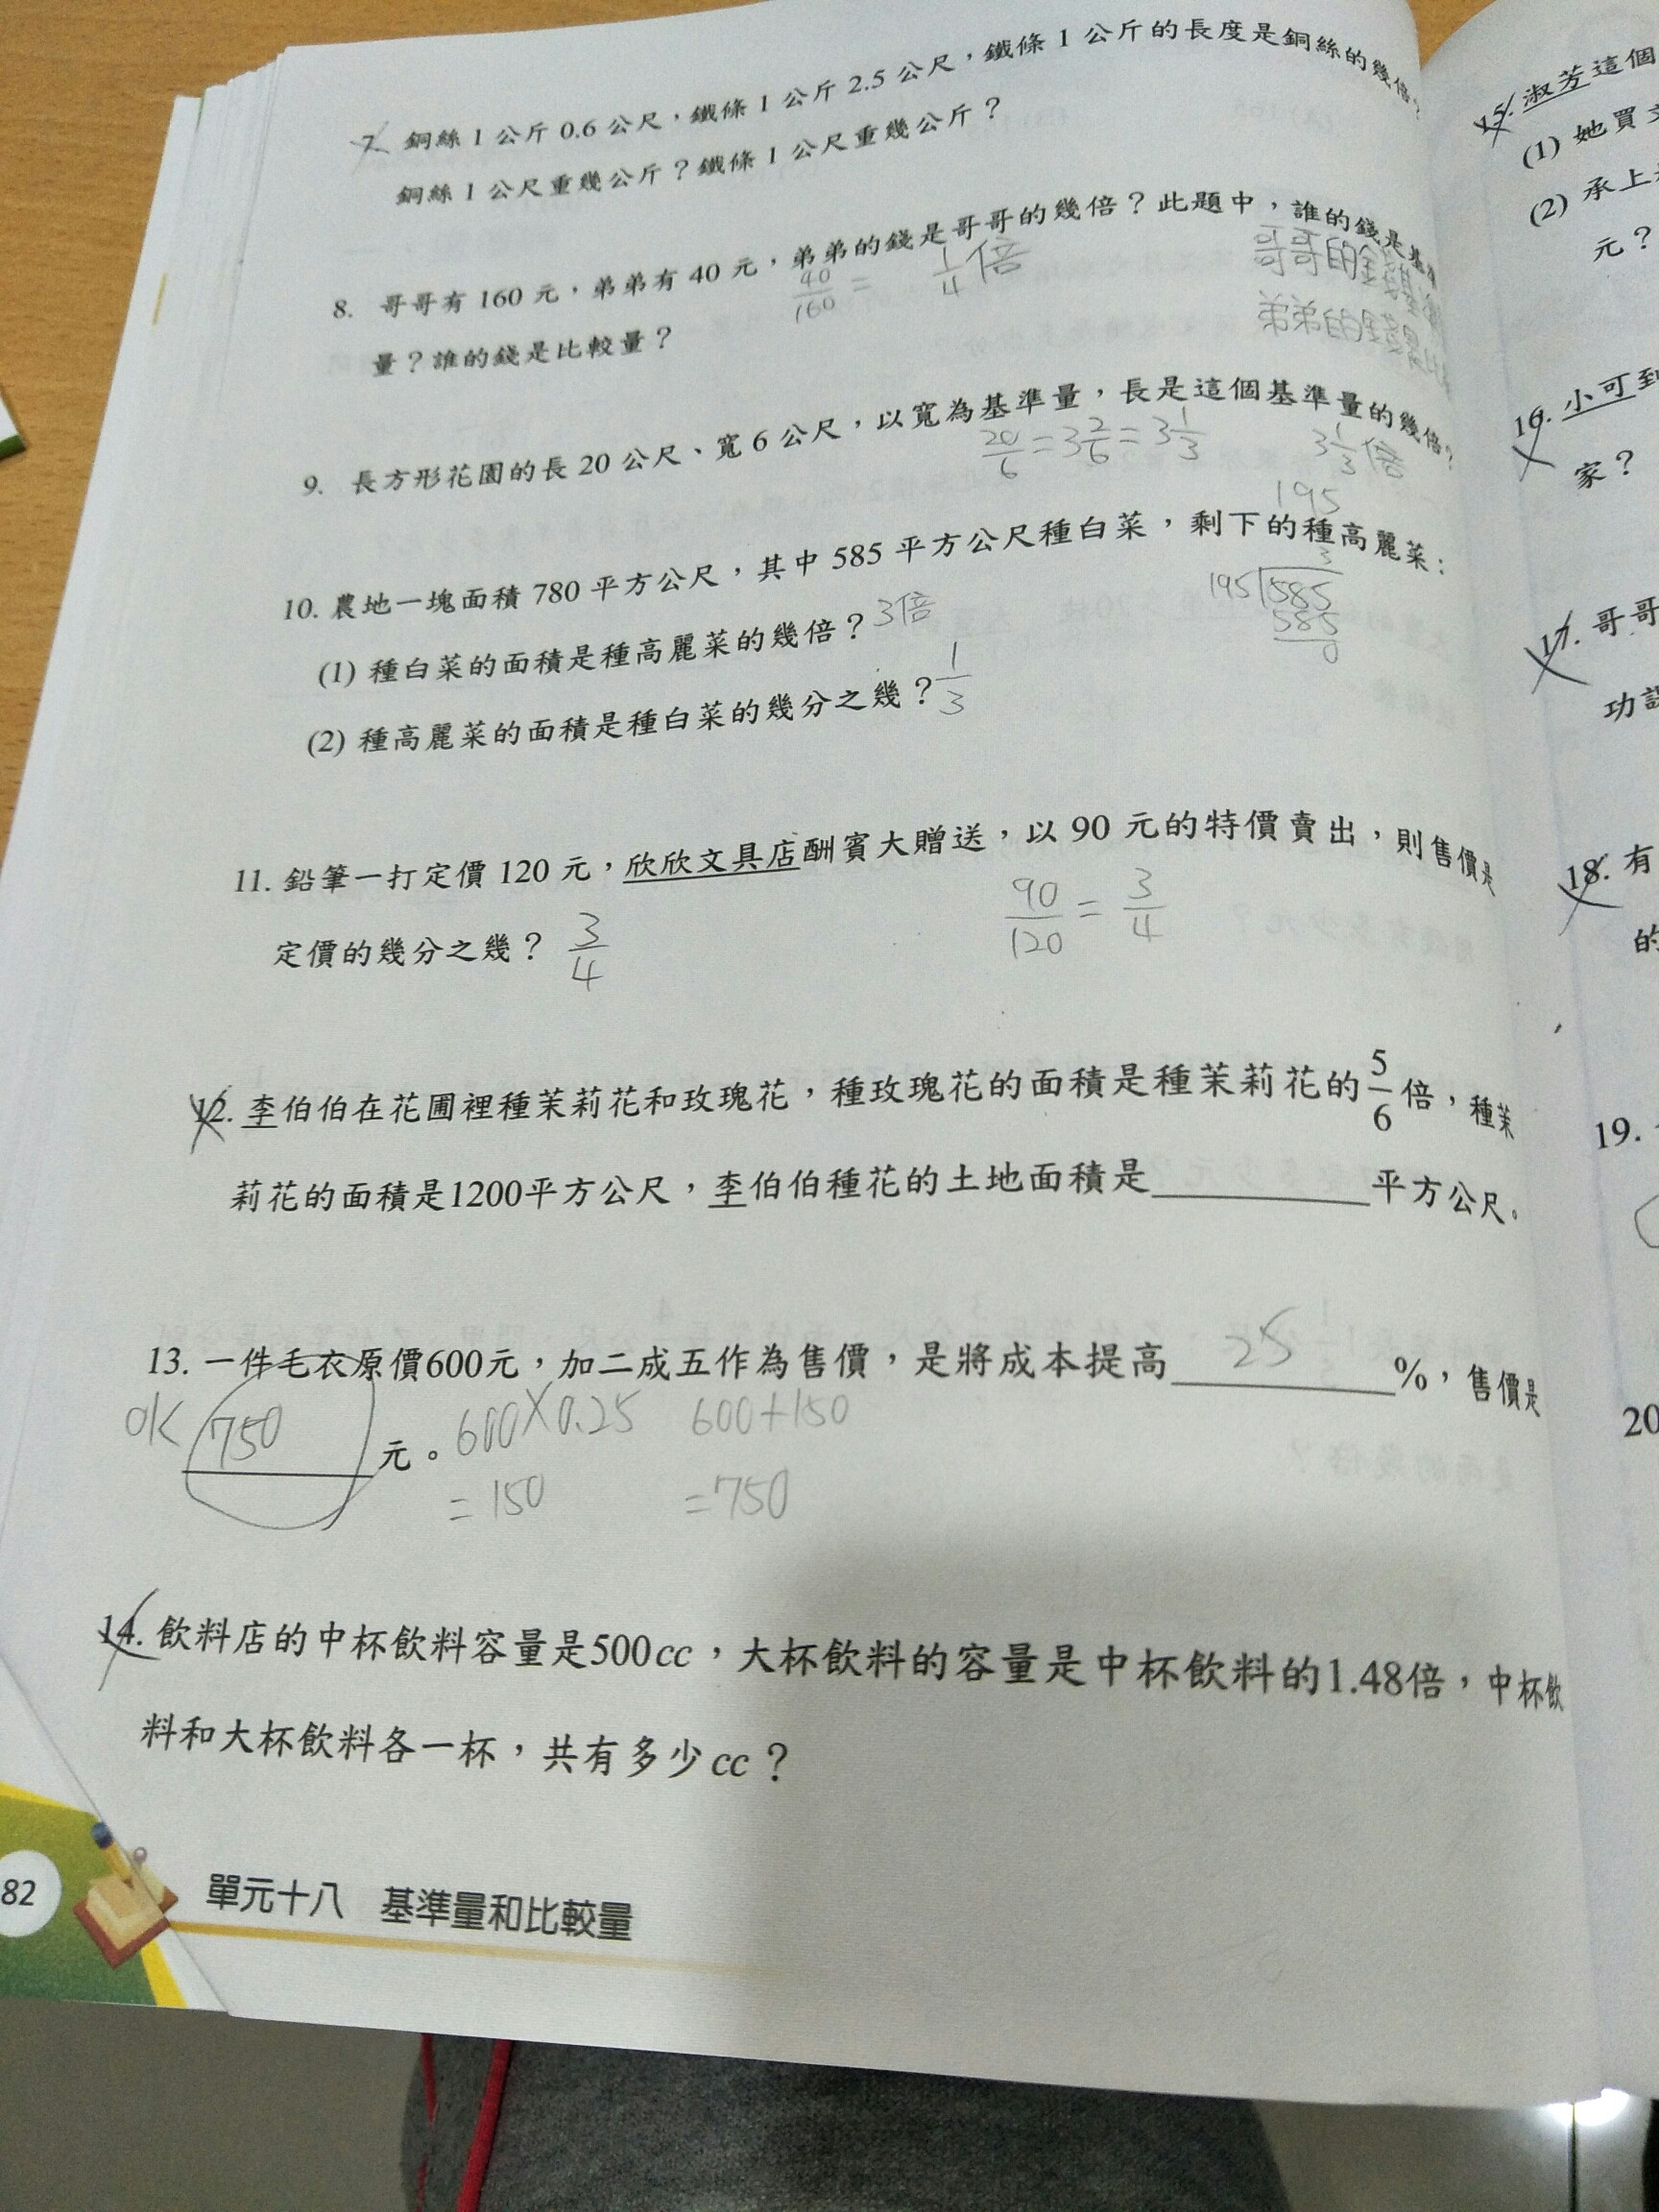 7. 銅絲1公斤0.6公尺，鐵條1公斤2.5公尺，鐵條1公斤的長度是銅絲的幾倍？
銅絲1公尺重幾公斤？鐵條1公尺重幾公斤？
8. 哥哥有160元，弟弟有40元，弟弟的錢是哥哥的幾倍？此題中，誰的錢是基準
40/160 = 1/4倍
哥哥的錢
弟弟的錢是比
量？誰的錢是比較量？
9. 長方形花園的長20公尺、寬6公尺，以寬為基準量，長是這個基準量的幾倍？
20/6=3 2/6=3 1/3
3 1/3倍
195
10. 農地一塊面積780平方公尺，其中585平方公尺種白菜，剩下的種高麗菜：
3
195 585
585
0
(1) 種白菜的面積是種高麗菜的幾倍？3倍
(2) 種高麗菜的面積是種白菜的幾分之幾？1/3
11. 鉛筆一打定價120元，欣欣文具店酬賓大贈送，以90元的特價賣出，則售價是
90/120=3/4
定價的幾分之幾？ 3/4
12. 李伯伯在花圃裡種茉莉花和玫瑰花，種玫瑰花的面積是種茉莉花的5/6倍，種茉
莉花的面積是1200平方公尺，李伯伯種花的土地面積是________平方公尺。
13. 一件毛衣原價600元，加二成五作為售價，是將成本提高25%，售價是
ok 750元。600×0.25 600+150
=150 =750
14. 飲料店的中杯飲料容量是500cc，大杯飲料的容量是中杯飲料的1.48倍，中杯飲
料和大杯飲料各一杯，共有多少cc？
82
單元十八 基準量和比較量
15. 淑芳這個
(1) 她買
(2) 承上
元？
16. 小可到
家？
17. 哥哥
功課
18. 有
的
19.
20